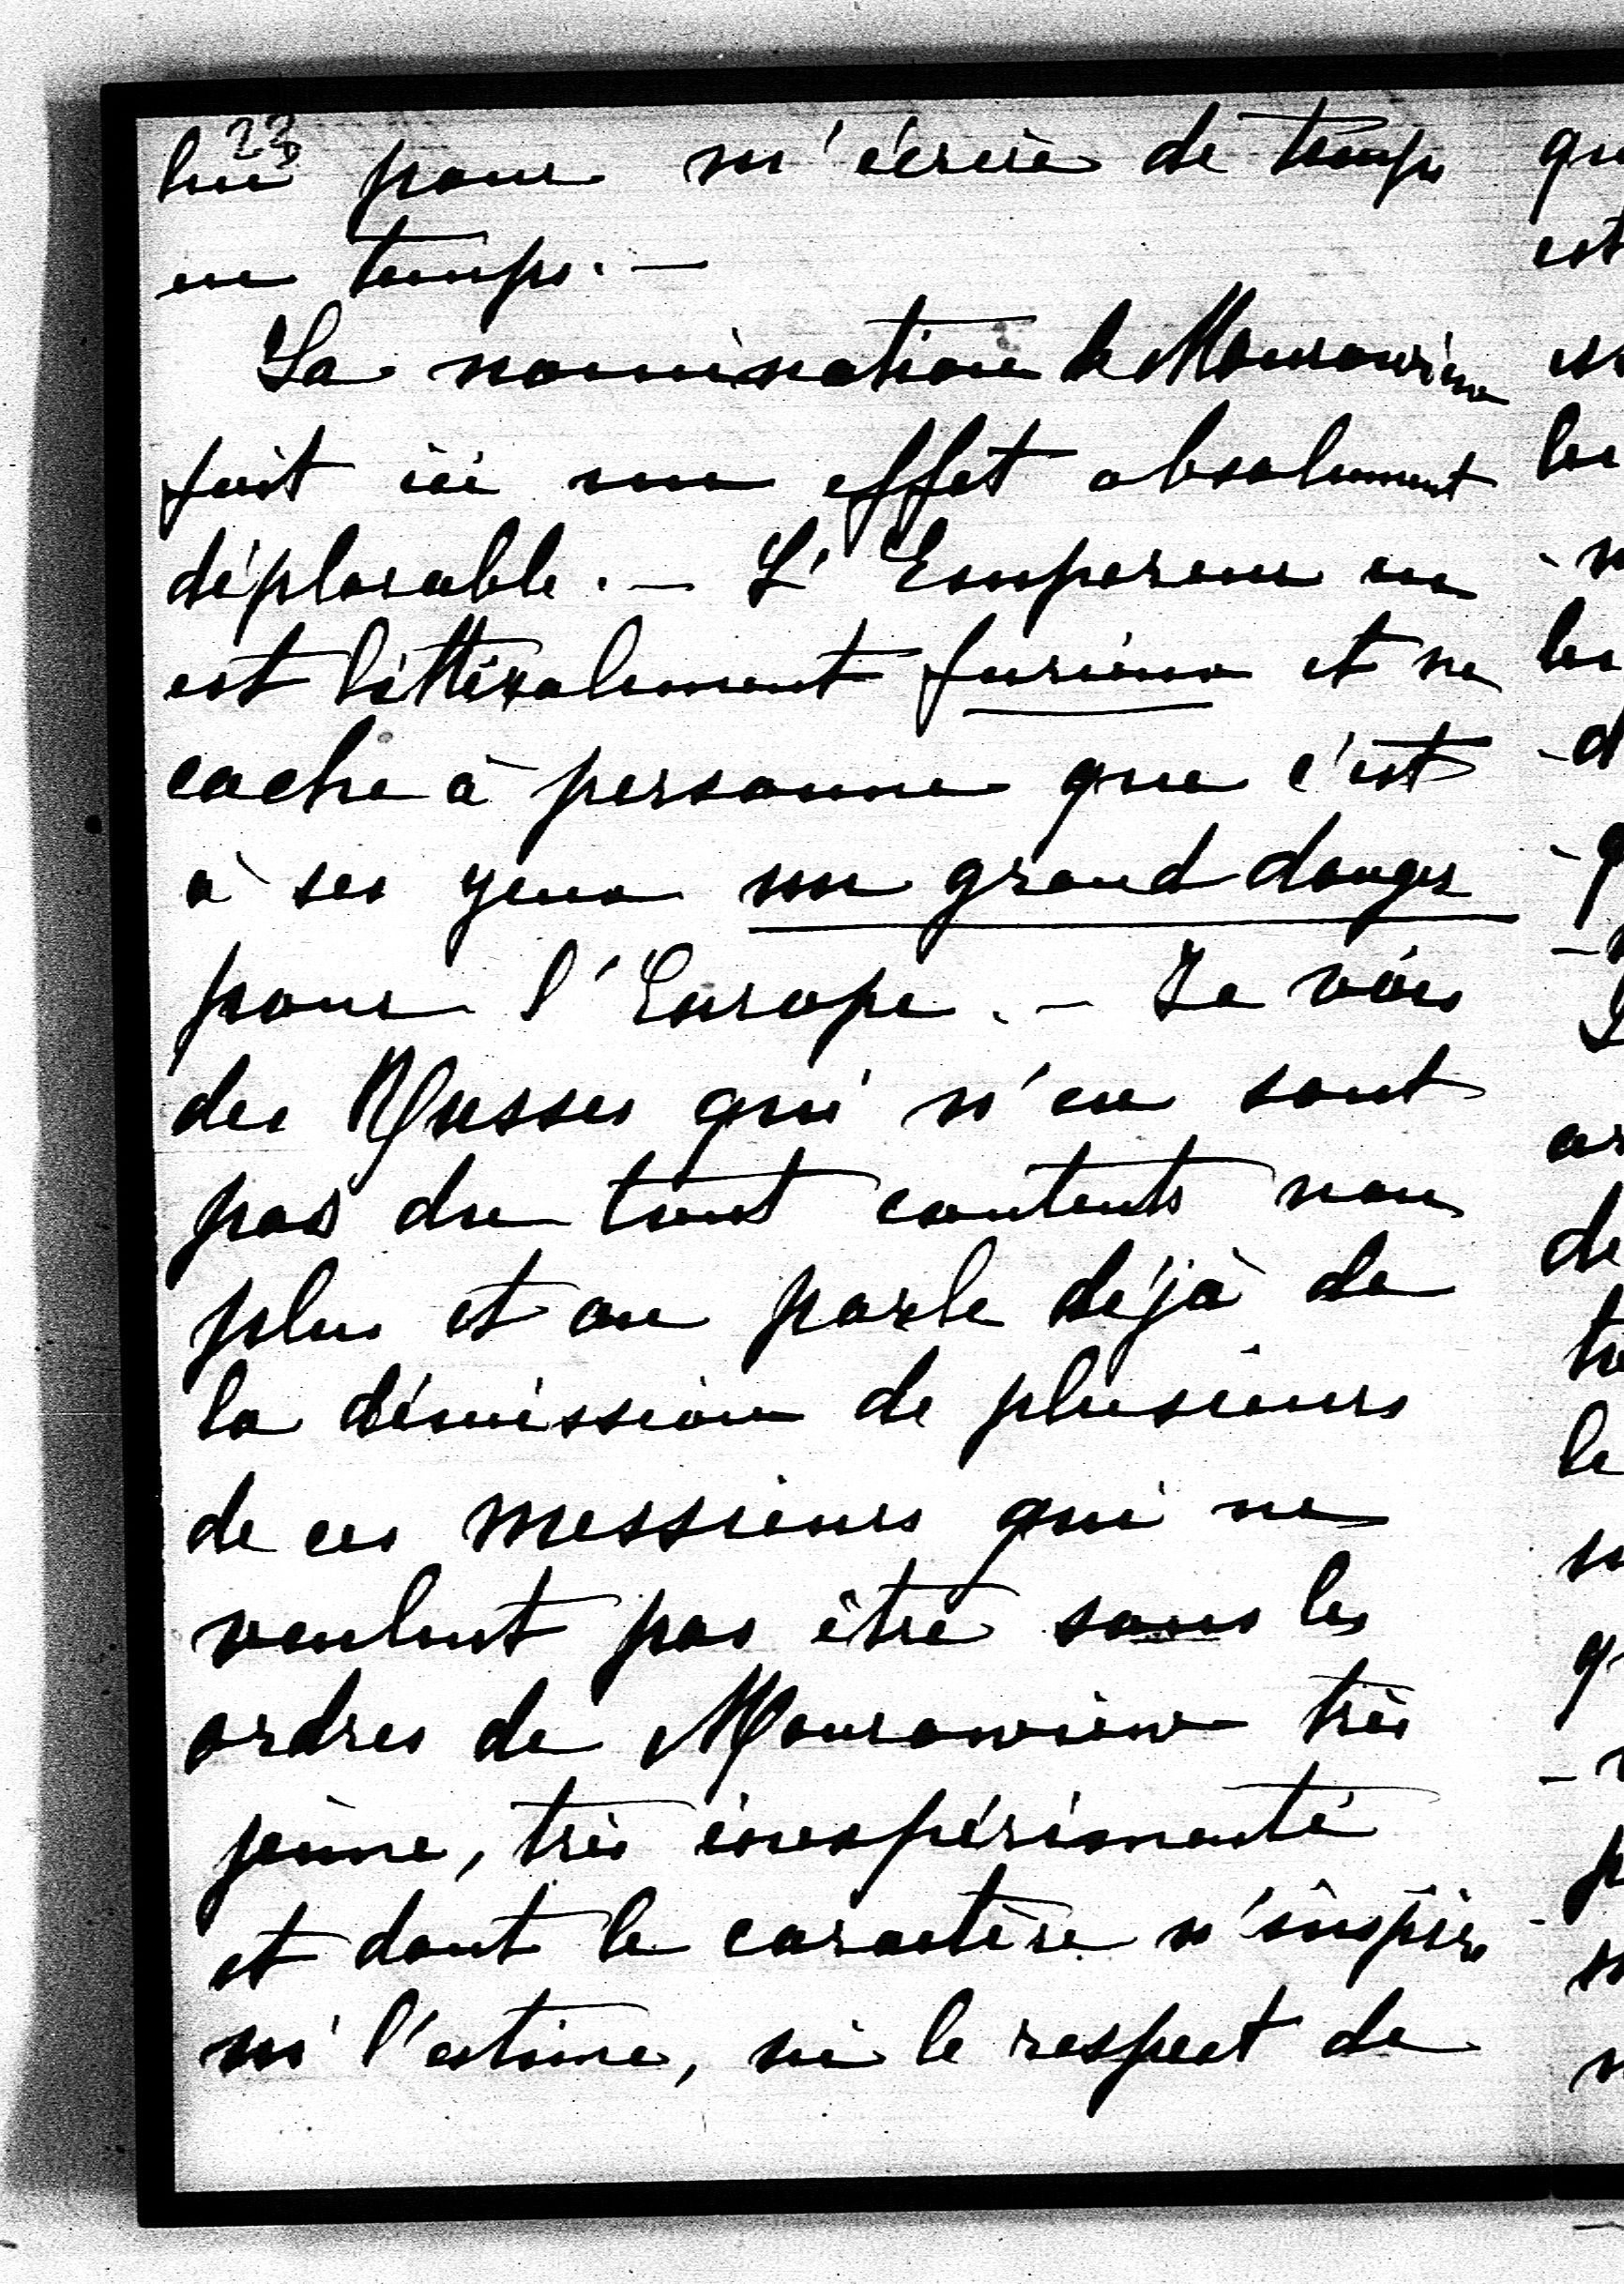 23
lui pour m'écrire de temps
en temps. —
La nomination de Mourawiew
fait ici un effet absolument
déplorable. — L'Empereur en
est littéralement furieux et ne
cache à personne que c'est
à ses yeux un grand danger
pour l'Europe. — Je vois
des Russes qui n'en sont
pas du tout contents non
plus et on parle déjà de
la démission de plusieurs
de ces messieurs qui ne
veulent pas être sous les
ordres de Mourawiew très
jeune, très inexpérimenté
et dont le caractère n'inspire
ni l'estime, ni le respect de